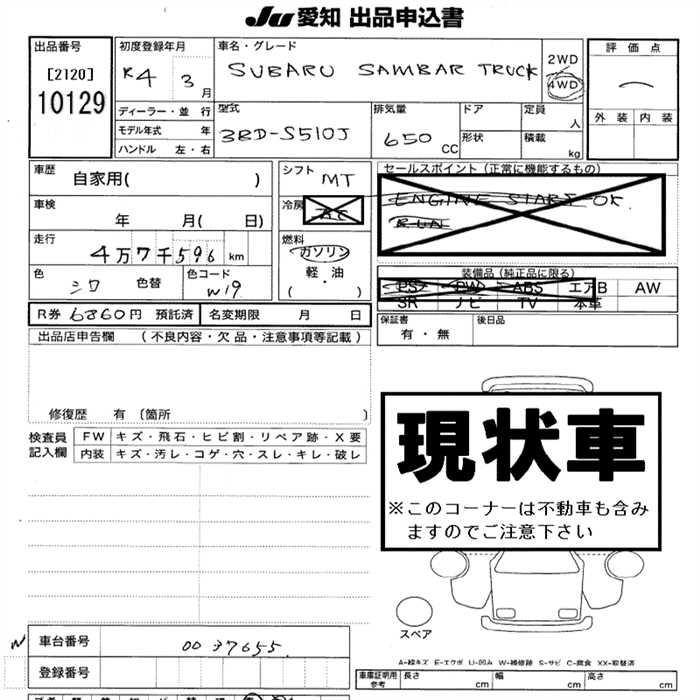 JU 愛知 出品申込書
出品番号
[2120]
10129
初度登録年月
R4 3月
ディーラー・並行
モデル年式 年
ハンドル 左・右
車名・グレード
SUBARU SAMBAR TRUCK
2WD
4WD
型式
3BD-S510J
排気量
650 CC
ドア
形状
定員 人
積載 kg
評価点
外装 内装
車歴
自家用( )
車検
年 月( 日)
走行
4万7千596 km
色
シロ
色替
色コード
W19
シフト
MT
冷房
AC
燃料
ガソリン
軽・油
( )
セールスポイント(正常に機能するもの)
ENGINE START OK
RUN
装備品(純正品に限る)
PS PW ABS エアB AW
SR ナビ TV 本革
R券 6860円 預託済
名変期限 月 日
保証書
有・無
後日品
出品店申告欄 (不良内容・欠品・注意事項等記載)
修復歴 有 〔箇所 〕
検査員
記入欄
FW キズ・飛石・ヒビ割・リペア跡・X要
内装 キズ・汚レ・コゲ・穴・スレ・キレ・破レ
現状車
※このコーナーは不動車も含み
ますのでご注意下さい
スペア
A=線キズ E=エクボ U=凹み W=補修跡 S=サビ C=腐食 XX=取替済
W
車台番号
0037655
登録番号
車庫証明用
参考
長さ cm
幅 cm
高さ cm